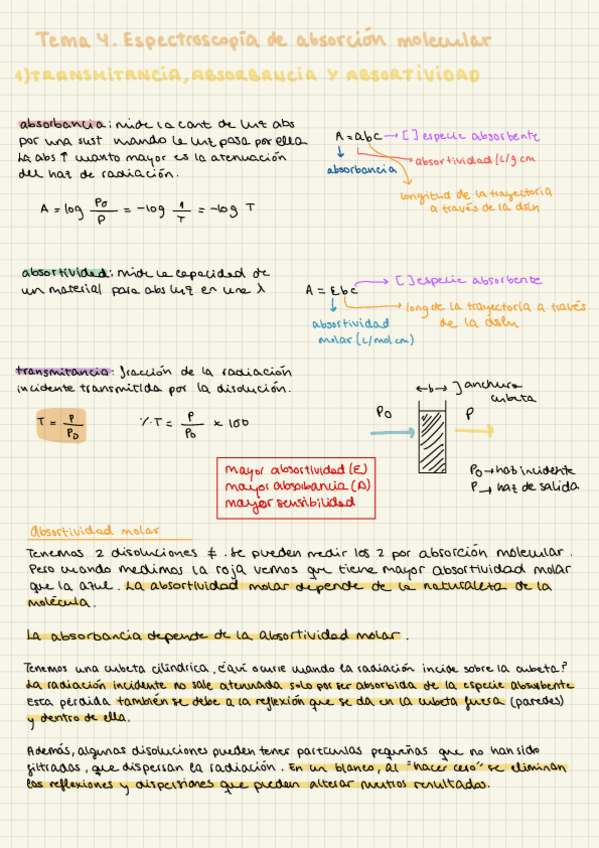 Tema 4. Espectroscopía de absorción molecular
1) TRANSMITANCIA, ABSORBANCIA Y ABSORTIVIDAD
absorbancia: mide la cant de luz abs
por una sust cuando la luz pasa por ella
La abs ↑ cuanto mayor es la atenuación
del haz de radiación.
A = log P0/P = -log 1/T = -log T
A = abc → [ ] especie absorbente
absorbancia
absortividad (L/g cm
longitud de la trayectoria
a través de la dsln
absortividad: mide la capacidad de
un material para abs luz en una λ
A = εbc → [ ] especie absorbente
long de la trayectoria a través
de la dsln
absortividad
molar (L/mol cm)
transmitancia: fracción de la radiación
incidente transmitida por la disolución.
T = P/P0
%T = P/P0 × 100
←b→ ] anchura
cubeta
P0
P
P0 → haz incidente
P → haz de salida
mayor absortividad (E)
mayor absorbancia (A)
mayor sensibilidad
Absortividad molar
Tenemos 2 disoluciones ≠. Se pueden medir los 2 por absorción molecular.
Pero cuando medimos la roja vemos que tiene mayor absortividad molar
que la azul. La absortividad molar depende de la naturaleza de la
molécula.
La absorbancia depende de la absortividad molar.
Tenemos una cubeta cilíndrica, ¿qué ocurre cuando la radiación incide sobre la cubeta?
La radiación incidente no sale atenuada solo por ser absorbida de la especie absorbente
Esta pérdida también se debe a la reflexión que se da en la cubeta fuera (paredes)
y dentro de ella.
Además, algunas disoluciones pueden tener partículas pequeñas que no han sido
filtradas, que dispersan la radiación. En un blanco, al "hacer cero" se eliminan
las reflexiones y dispersiones que pueden alterar nuestros resultados.